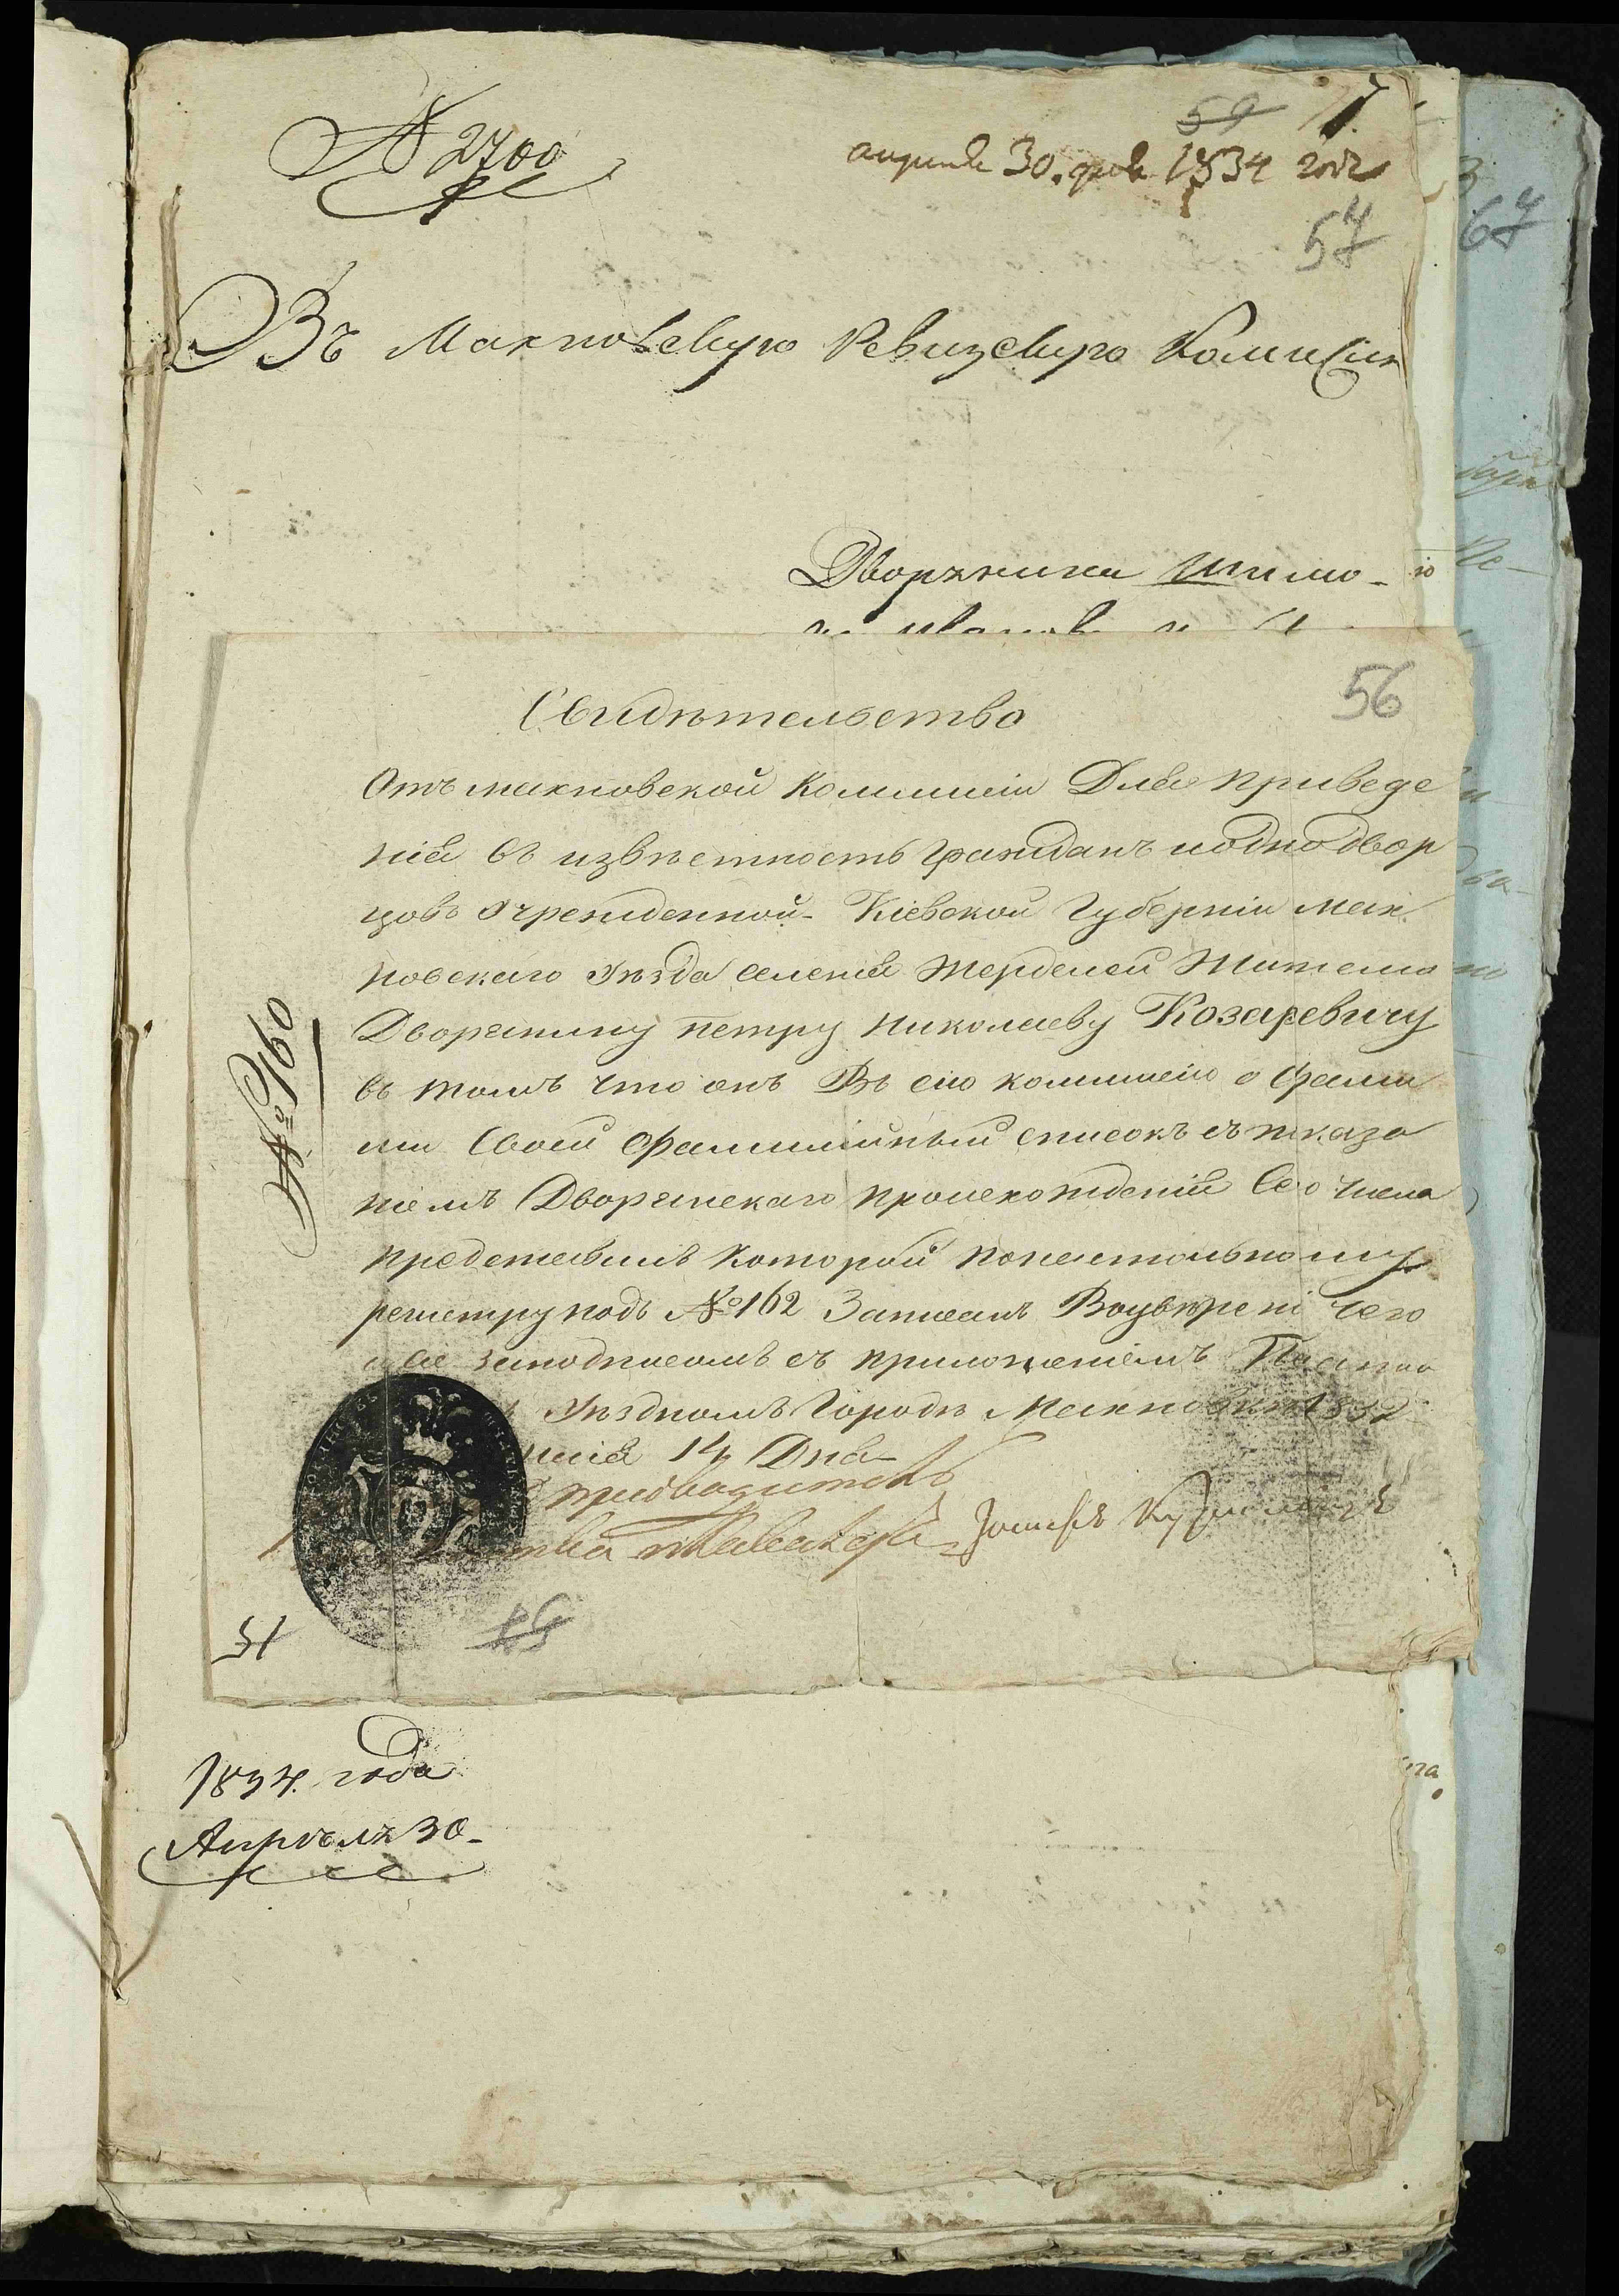 № 2700
59
апреля 30. дня 1834 года
57
67
Въ Махновскую Ревизскую Комисию
Дворянина
56
Свидѣтельство
Отъ махновской Коммисіи Для приведе
нія въ извѣстность гражданъ иоднодвор
цовъ Учрежденной Кіевской Губерніи Мах
новскаго Уѣзда селенія Жерделей Жителю
Дворянину Петру Николаеву Козаревичу
въ томъ что онъ Въ сію коммисію о фами
ліи Своей Фамилійный списокъ съ показа
ніемъ Дворянскаго происхожденія Сего числа
представилъ который понастольному
регистру подъ №162 Записанъ Воувѣреніе чего
и сіе заподписомъ съ приложеніемъ Печати
Уѣздномъ Городѣ Махновкѣ 1832
14 Дня
№ 160
предводитель
Іосифъ
51
1834. года
Апрѣля 30